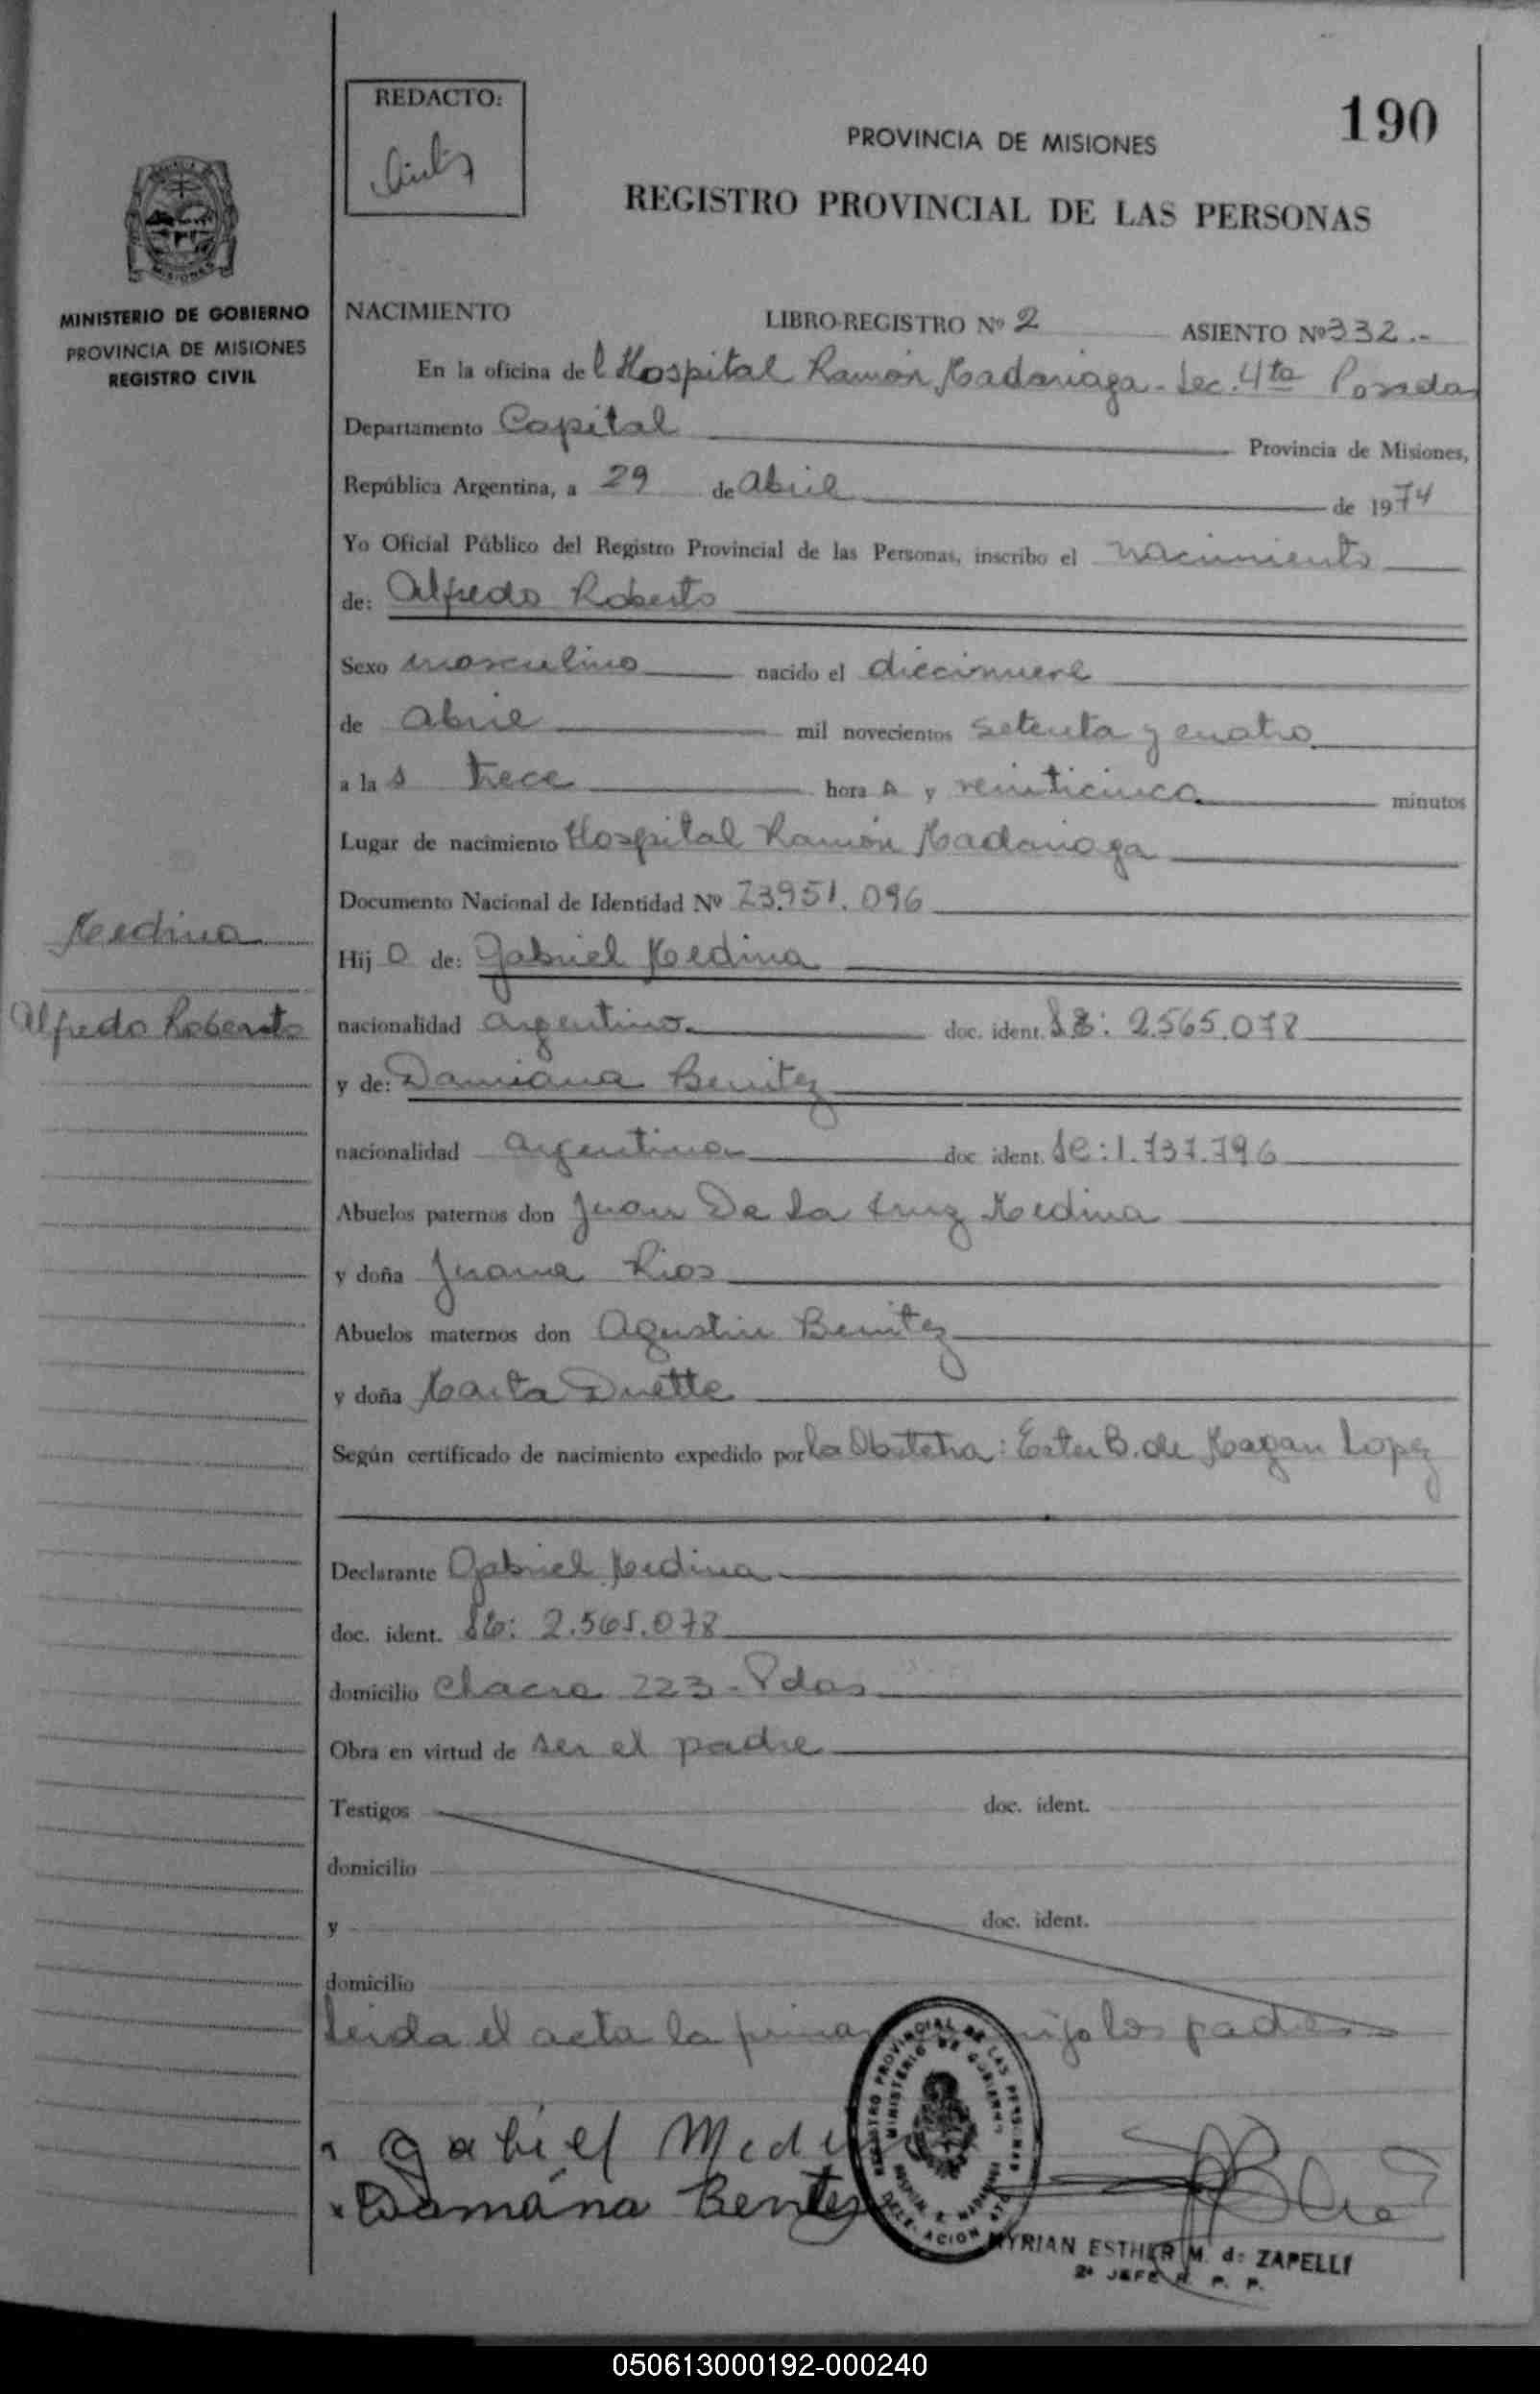 190
REDACTO:
PROVINCIA DE MISIONES
REGISTRO PROVINCIAL DE LAS PERSONAS
MISIONES
MINISTERIO DE GOBIERNO
PROVINCIA DE MISIONES
REGISTRO CIVIL
NACIMIENTO LIBRO-REGISTRO Nº 2 ASIENTO Nº 332.-
En la oficina del Hospital Ramón Madariaga - Sec. 4ta Posadas
Departamento Capital Provincia de Misiones,
República Argentina, a 29 de Abril de 1974
Yo Oficial Público del Registro Provincial de las Personas, inscribo el nacimiento
de: Alfredo Roberto
Sexo masculino nacido el diecinueve
de Abril mil novecientos setenta y cuatro
a las trece horas y veinticinco minutos
Lugar de nacimiento Hospital Ramón Madariaga
Documento Nacional de Identidad Nº 23.951.096
Medina
Hijo de: Gabriel Medina
Alfredo Roberto
nacionalidad argentino doc. ident. 2.565.078
y de: Damiana Benitez
nacionalidad argentina doc ident. 1.737.796
Abuelos paternos don Juan De La Cruz Medina
y doña Juana Rios
Abuelos maternos don Agustin Benitez
y doña Marta Duette
Según certificado de nacimiento expedido por la Obstetra: Ester B. de Magan Lopez
Declarante Gabriel Medina
doc. ident. 2.565.078
domicilio Chacra 223 - Pdas
Obra en virtud de ser el padre
Testigos doc. ident.
domicilio
y doc. ident.
domicilio
Leida el acta la los padres
Gabiel Medi
Damána Bentez
REGISTRO PROVINCIAL DE LAS PERSONAS
MINISTERIO DE GOBIERNO
DELEGACION
MYRIAN ESTHER M. de ZAPELLI
2º JEFE R. P. P.
050613000192-000240